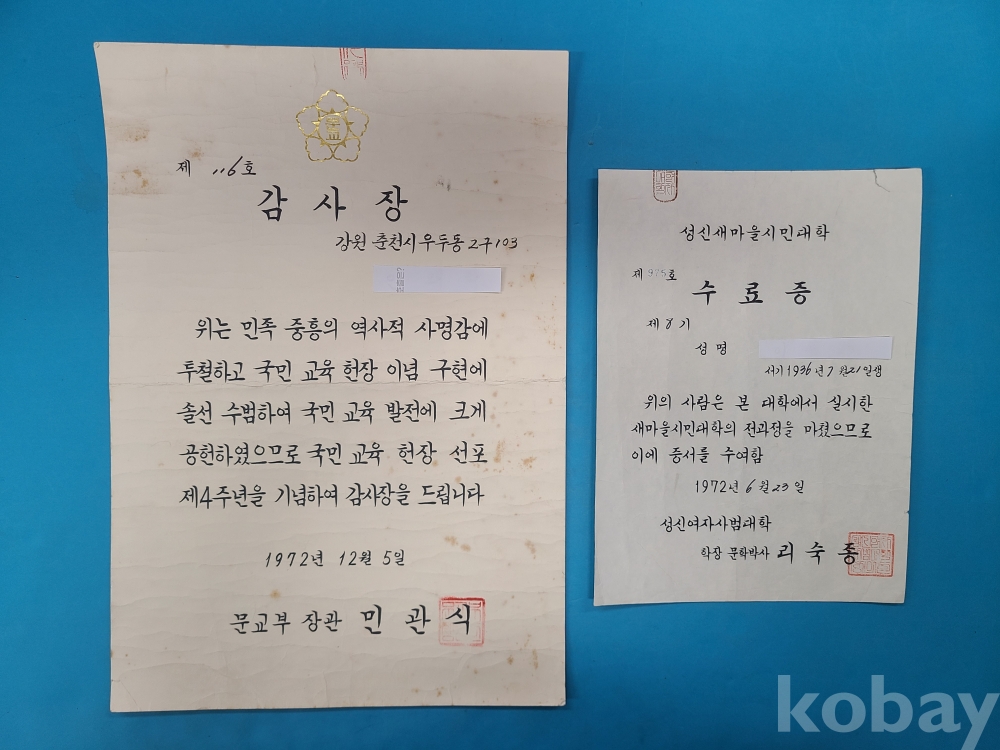 제 116호
감 사 장
강원 춘천시 우두동 2구103
위는 민족 중흥의 역사적 사명감에
투철하고 국민 교육 헌장 이념 구현에
솔선 수범하여 국민 교육 발전에 크게
공헌하였으므로 국민 교육 헌장 선포
제4주년을 기념하여 감사장을 드립니다
1972년 12월 5일
문교부 장관 민 관 식
성신새마을시민대학
제 975호
수 료 증
제 8 기
성 명
서기 1936년 7월 21일생
위의 사람은 본 대학에서 실시한
새마을시민대학의 전과정을 마쳤으므로
이에 증서를 수여함
1972년 6월 23일
성신여자사범대학
학장 문학박사 리 숙 종
kobay